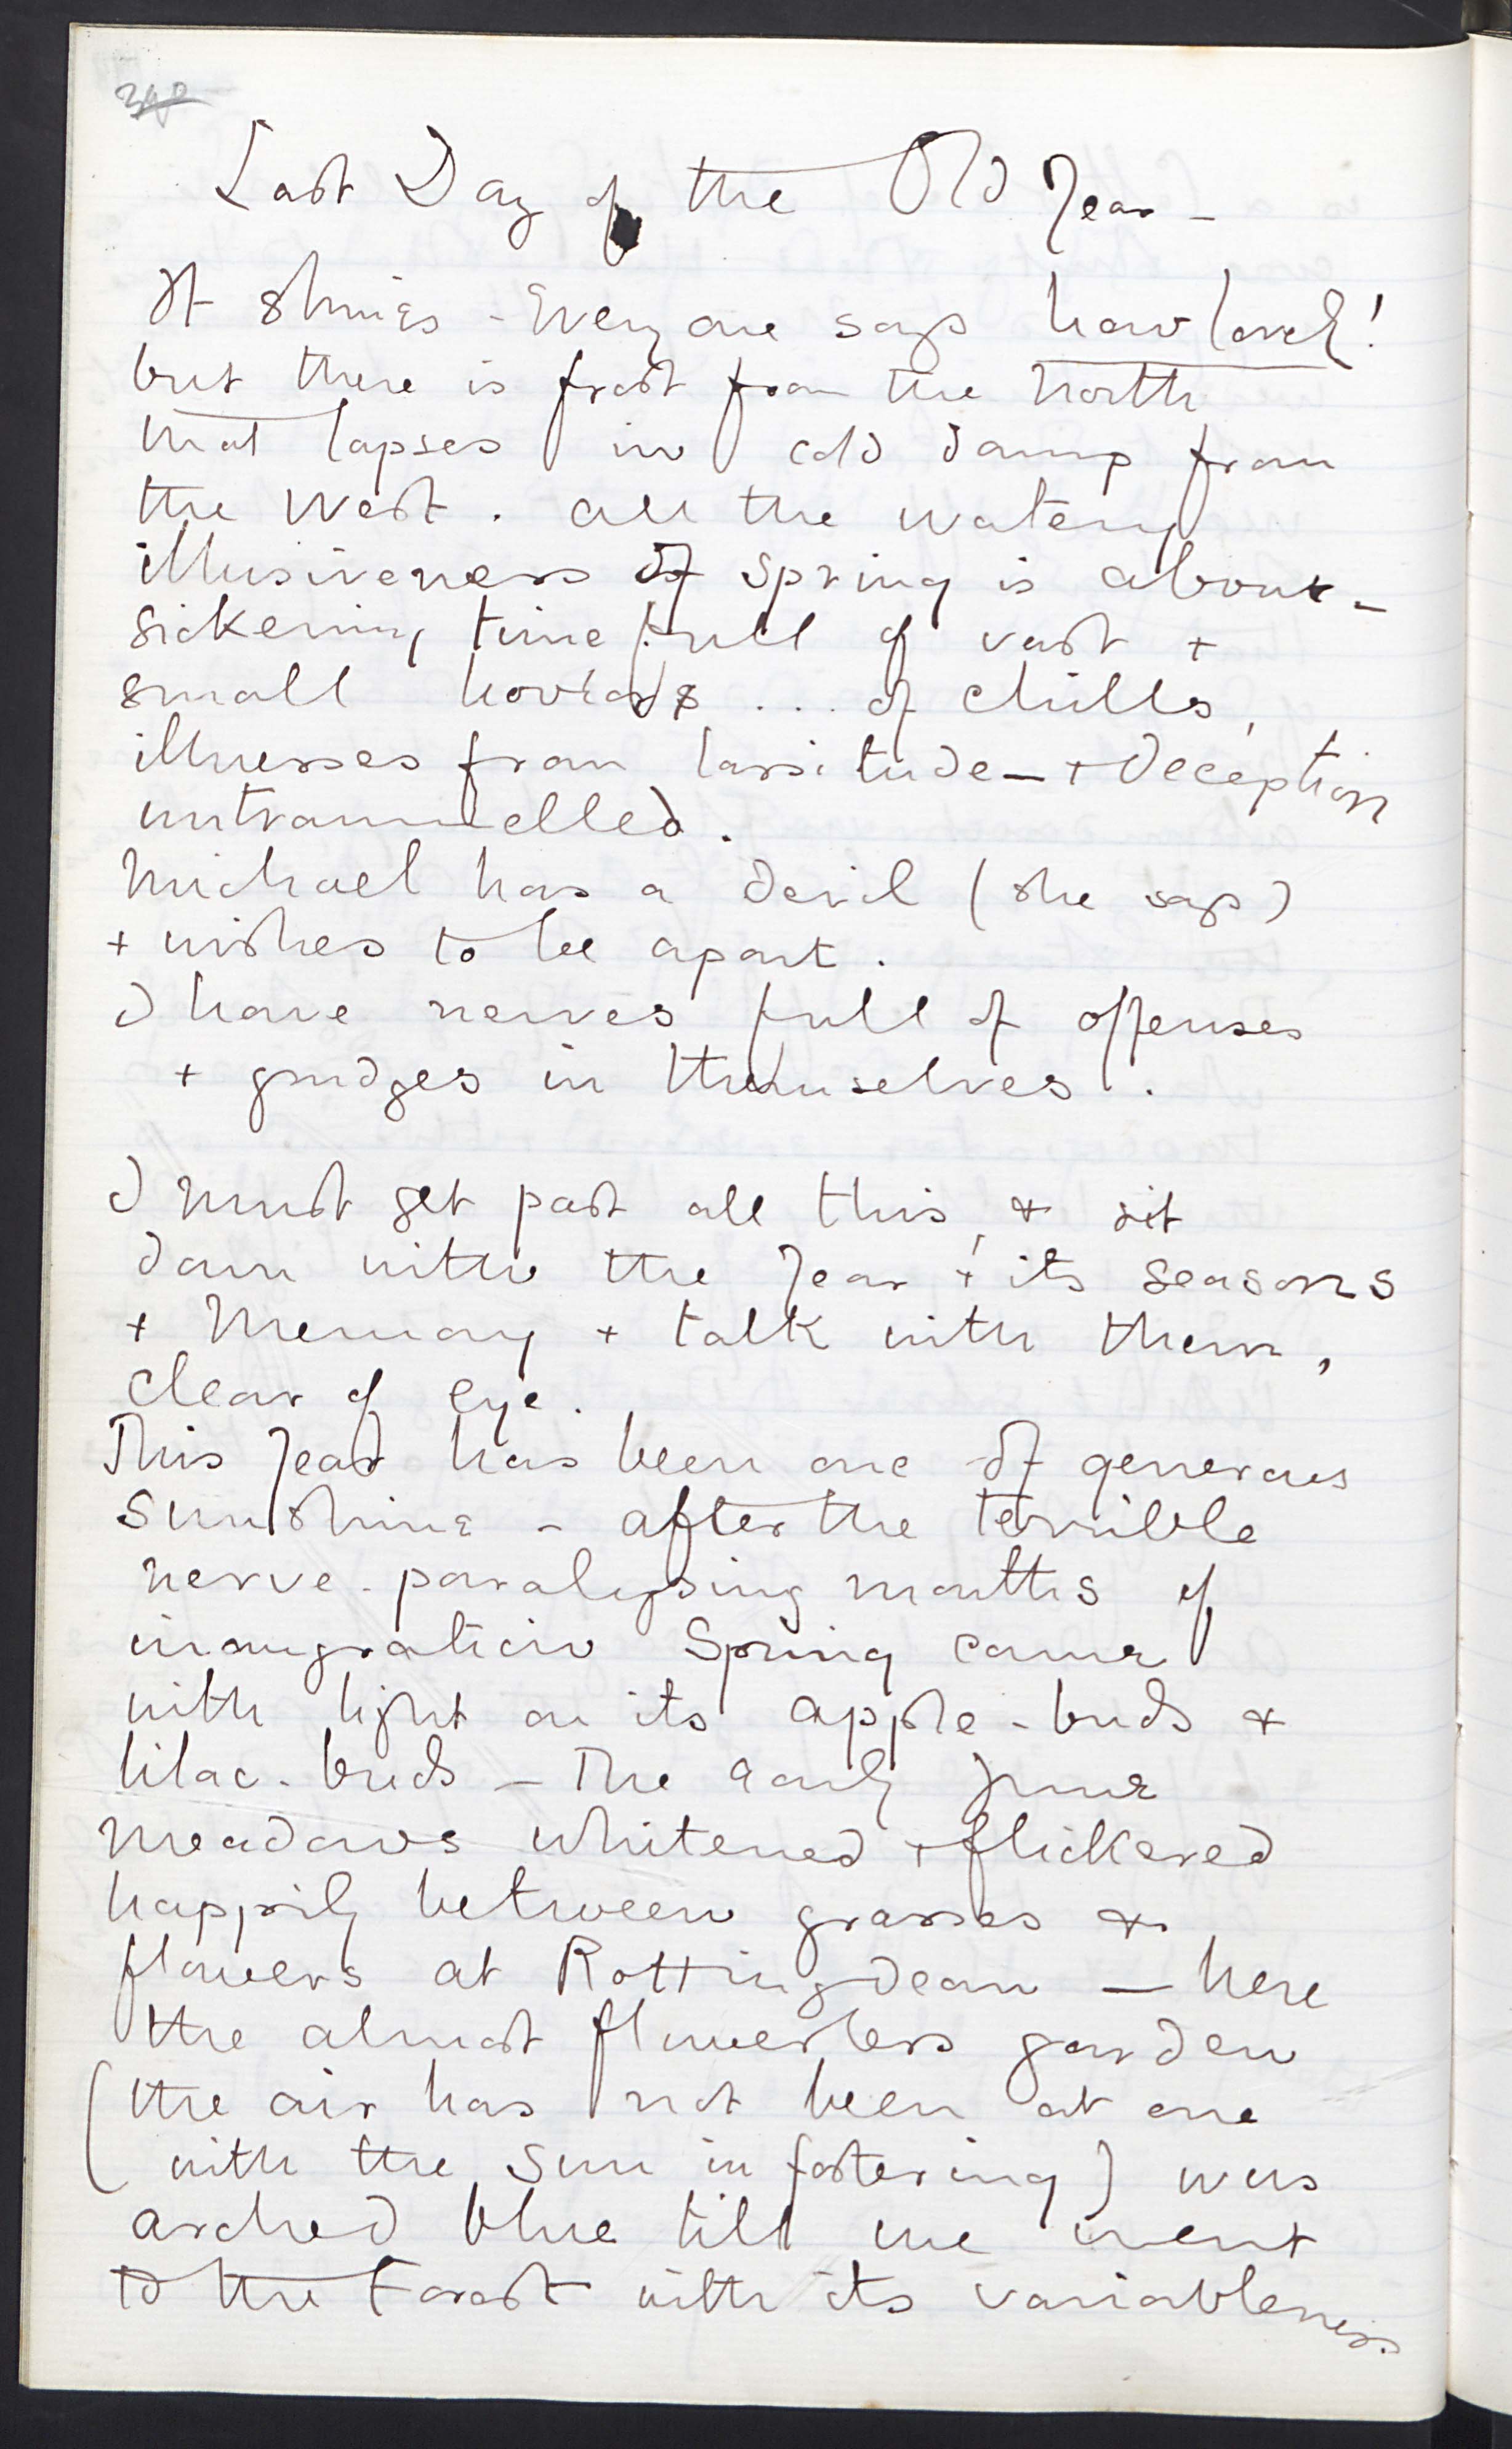 Last Day of the Old Year -
It shines - Everyone says how lovely!
but there is frost from the North
that lapses in cold damp from
the West. All the watery
illusiveness of Spring is about -
sickening time full of vast +
small horrors ... of chills,
illnesses from lassitude - + deception
untrammelled.
Michael has a devil (she says)
+ wishes to be apart.
I have nerves full of offenses
+ grudges in themselves.
I must get past all this, & sit
down with the Year + its seasons
+ Memory + talk with them,
clear of eye.
This Year has been one of generous
Sunshine - after the terrible
nerve-paralysing months of
inauguration Spring came
with light on its apple-buds &
lilac-buds - The early June
meadows whitened + flickered
happily between grasses &
flowers at Rottingdean - here
the almost flowerless garden
(the air has not been at one
with the Sun in fostering) was
arched blue till we went
to the Forest with its variableness